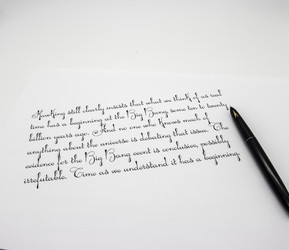 Hawking still clearly insists that what we think of as real
time has a beginning at the Big Bang some ten to twenty
billion years ago. And no one who knows much of
anything about the universe is debating that issue. The
evidence for the Big Bang event is conclusive, possibly
irrefutable. Time as we understand it has a beginning